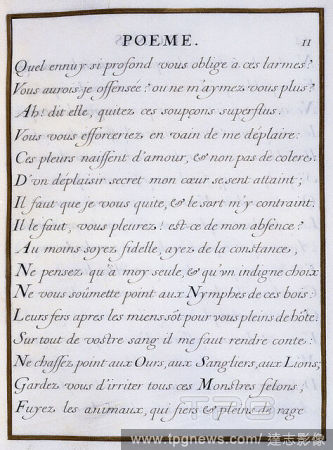 POEME. 11
Quel ennuy si profond vous oblige a ces larmes?
Vous aurois je offensee? ou ne m'aymez vous plus?
Ah! dit elle, quitez ces soupçons superflus.
Vous vous efforceriez en vain de me déplaire:
Ces pleurs naissent d'amour, & non pas de colere.
D'vn déplaisir secret mon cœur se sent attaint;
Il faut que je vous quite, & le sort m'y contraint.
Il le faut, vous pleurez! est ce de mon absence?
Au moins soyez fidelle, ayez de la constance,
Ne pensez qu'a moy seule, & qu'vn indigne choix
Ne vous soûmette point aux Nymphes de ces bois:
Leurs fers apres les miens sôt pour vous pleins de hôte.
Sur tout de vostre sang il me faut rendre conte:
Ne chassez point aux Ours, aux Sangliers, aux Lions;
Gardez vous d'irriter tous ces Monstres felons;
Fuyez les animaux, qui fiers & pleins de rage
TPG
www.tpgnews.com/ 達志影像